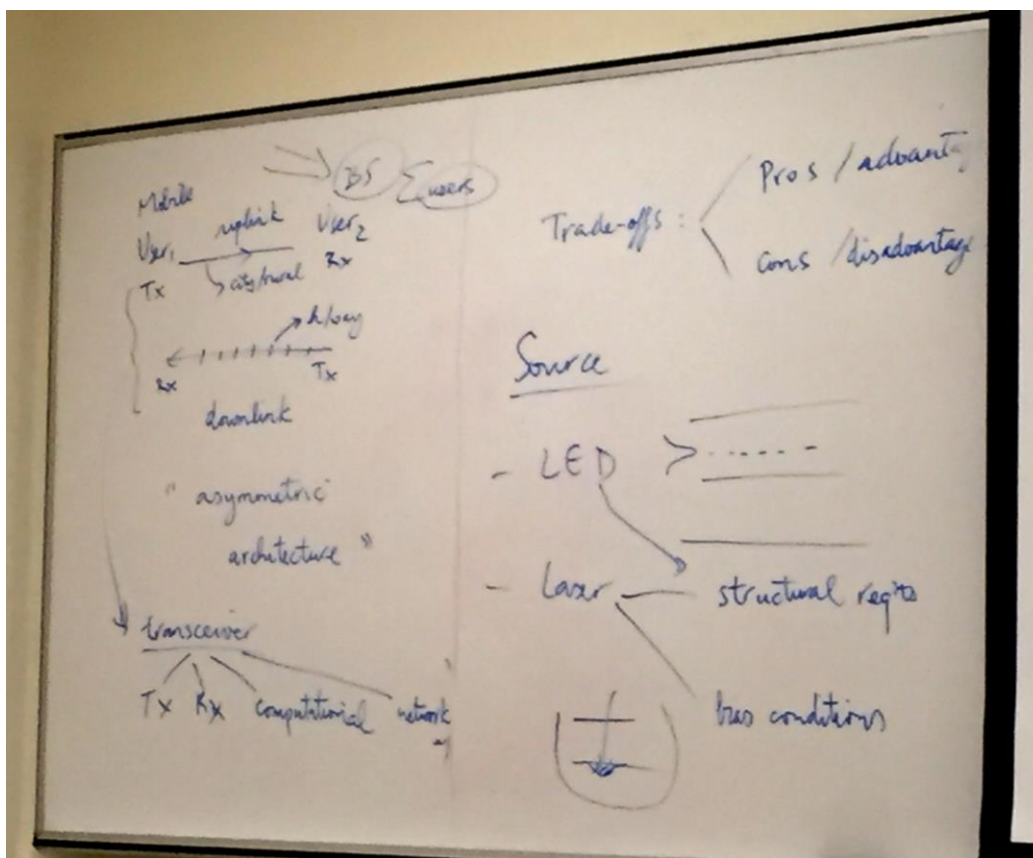 BS Σ users
Mobile
User1 uplink User2
Tx city/rural Rx
Rx Tx
downlink
" asymmetric
architecture "
transceiver
Tx Rx computational network
Trade-offs : Pros / advantag
cons / disadvantage
Source
- LED
- Laser structural reqts
bias conditions